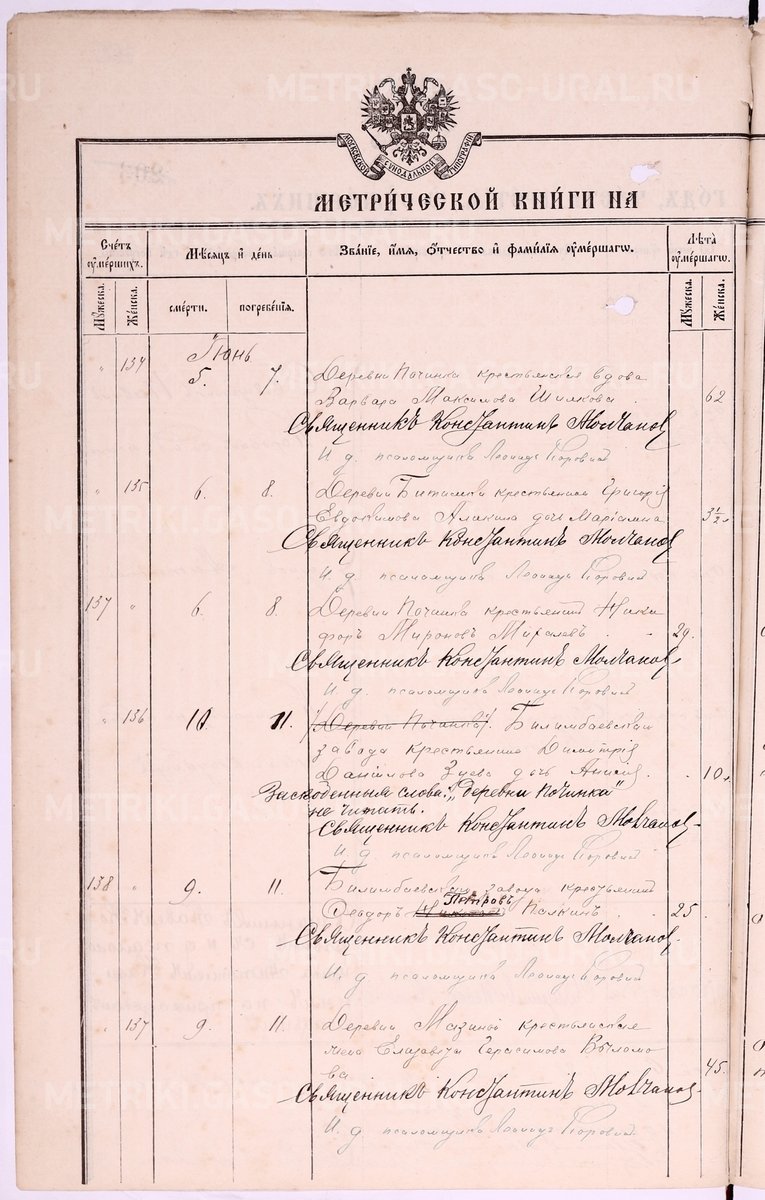 МОСКОВСКОЙ СѴНОДАЛЬНОЙ ТИПОГРАФІИ
МЕТРИ́ЧЕСКОЙ КНИ́ГИ НА
Сче́тъ ᲂуме́ршихъ.
Мѣ́сяцъ и де́нь
Зва́нїе, и҆́мя, ѻ҆́тчество и фами́лїя ᲂуме́ршагѡ.
Лѣ́та ᲂуме́ршагѡ.
Мꙋ́жеска.
Же́нска.
сме́рти.
погребе́нїя.
Мꙋ́жеска.
Же́нска.
Іюнь
" 134 5. 7. Деревни Починка крестьянская вдова
Варвара Максимова . 62
Священникъ Константинъ Молчановъ
И. д. псаломщика Леонидъ Боровий
" 135 6. 8. Деревни Битимки крестьянина Григорія
Евдокимова дочь Маріамна 3½
Священникъ Константинъ Молчановъ
И. д. псаломщика Леонидъ Боровий
137 " 6. 8. Деревни Починка крестьянинъ Ники
форъ Мироновъ . . 29.
Священникъ Константинъ Молчановъ
И. д. псаломщика Леонидъ Боровий
" 136 10 11. /Деревни Починка/. Билимбаевскаго
завода крестьянина Димитрія
Даніилова Зуева дочь Анисія . . 10
Заскобеннымъ словамъ: „Деревни Починка"
не читать.
Священникъ Константинъ Молчановъ
И. д. псаломщика Леонидъ Боровий
138 " 9. 11. Билимбаевскаго завода крестьянинъ
Петровъ
Ѳеодоръ Палкинъ . . 25
Священникъ Константинъ Молчановъ
И. д. псаломщика Леонидъ Боровий
" 137 9. 11. Деревни Мазиной крестьянская
жена Елизавета Герасимова Выломо
ва 45.
Священникъ Константинъ Молчановъ
И. д. псаломщика Леонидъ Боровий
METRIKI.GASO-URAL.RU